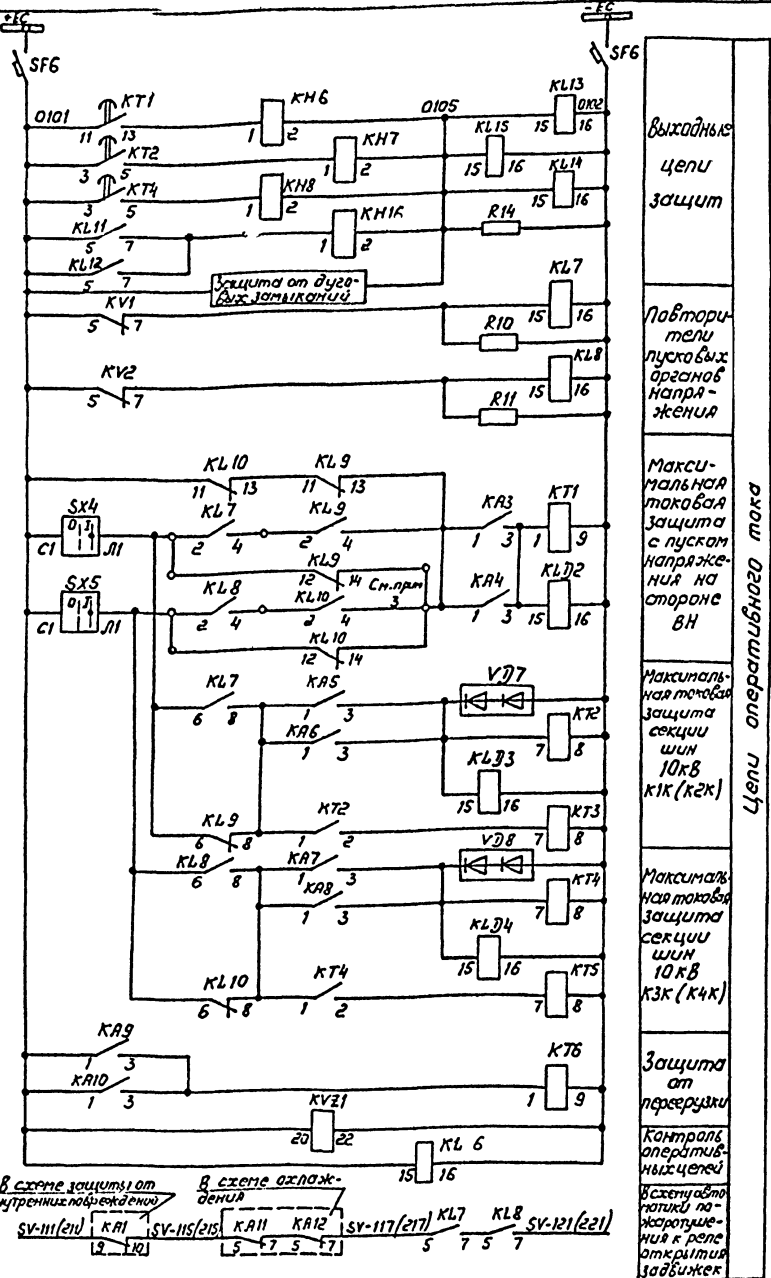 +EC
-EC
SF6
SF6
0101
KT1
11 13
KH6
1 2
0105
KL13
0102
15 16
KT2
3 5
KH7
1 2
KL15
15 16
KT4
3 5
KH8
1 2
KL14
15 16
KL11
5 7
KH16
1 2
R14
KL12
5 7
Защита от дуго-
вых замыканий
KV1
5 7
KL7
15 16
R10
KV2
5 7
KL8
15 16
R11
KL10
11 13
KL9
11 13
SX4
C1 Л1
KL7
2 4
KL9
2 4
KA3
1 3
KT1
1 9
KL9
12 14
См. прим
3
SX5
C1 Л1
KL8
2 4
KL10
2 4
KA4
1 3
KLD2
15 16
KL10
12 14
KL7
6 8
KA5
1 3
VD7
KA6
1 3
KT2
7 8
KLD3
15 16
KL9
6 8
KT2
1 2
KT3
7 8
KL8
6 8
KA7
1 3
VD8
KA8
1 3
KT4
7 8
KLD4
15 16
KL10
6 8
KT4
1 2
KT5
7 8
KA9
1 3
KA10
1 3
KT6
1 9
KVZ1
20 22
KL6
15 16
В схеме защиты от
внутренних повреждений
В схеме охлаж-
дения
SV-111(211)
KA1
9 10
SV-115(215)
KA11
5 7
KA12
5 7
SV-117(217)
KL7
5 7
KL8
5 7
SV-121(221)
Выходные
цепи
защит
Повтори-
тели
пусковых
органов
напря-
жения
Макси-
мальная
токовая
защита
с пуском
напряже-
ния на
стороне
ВН
Максималь-
ная токовая
защита
секции
шин
10кВ
К1К (К2К)
Максималь-
ная токовая
защита
секции
шин
10кВ
К3К (К4К)
Защита
от
перегрузки
Контроль
оператив-
ных цепей
В схему авто-
матики по-
жаротуше-
ния к реле
открытия
задвижек
Цепи оперативного тока